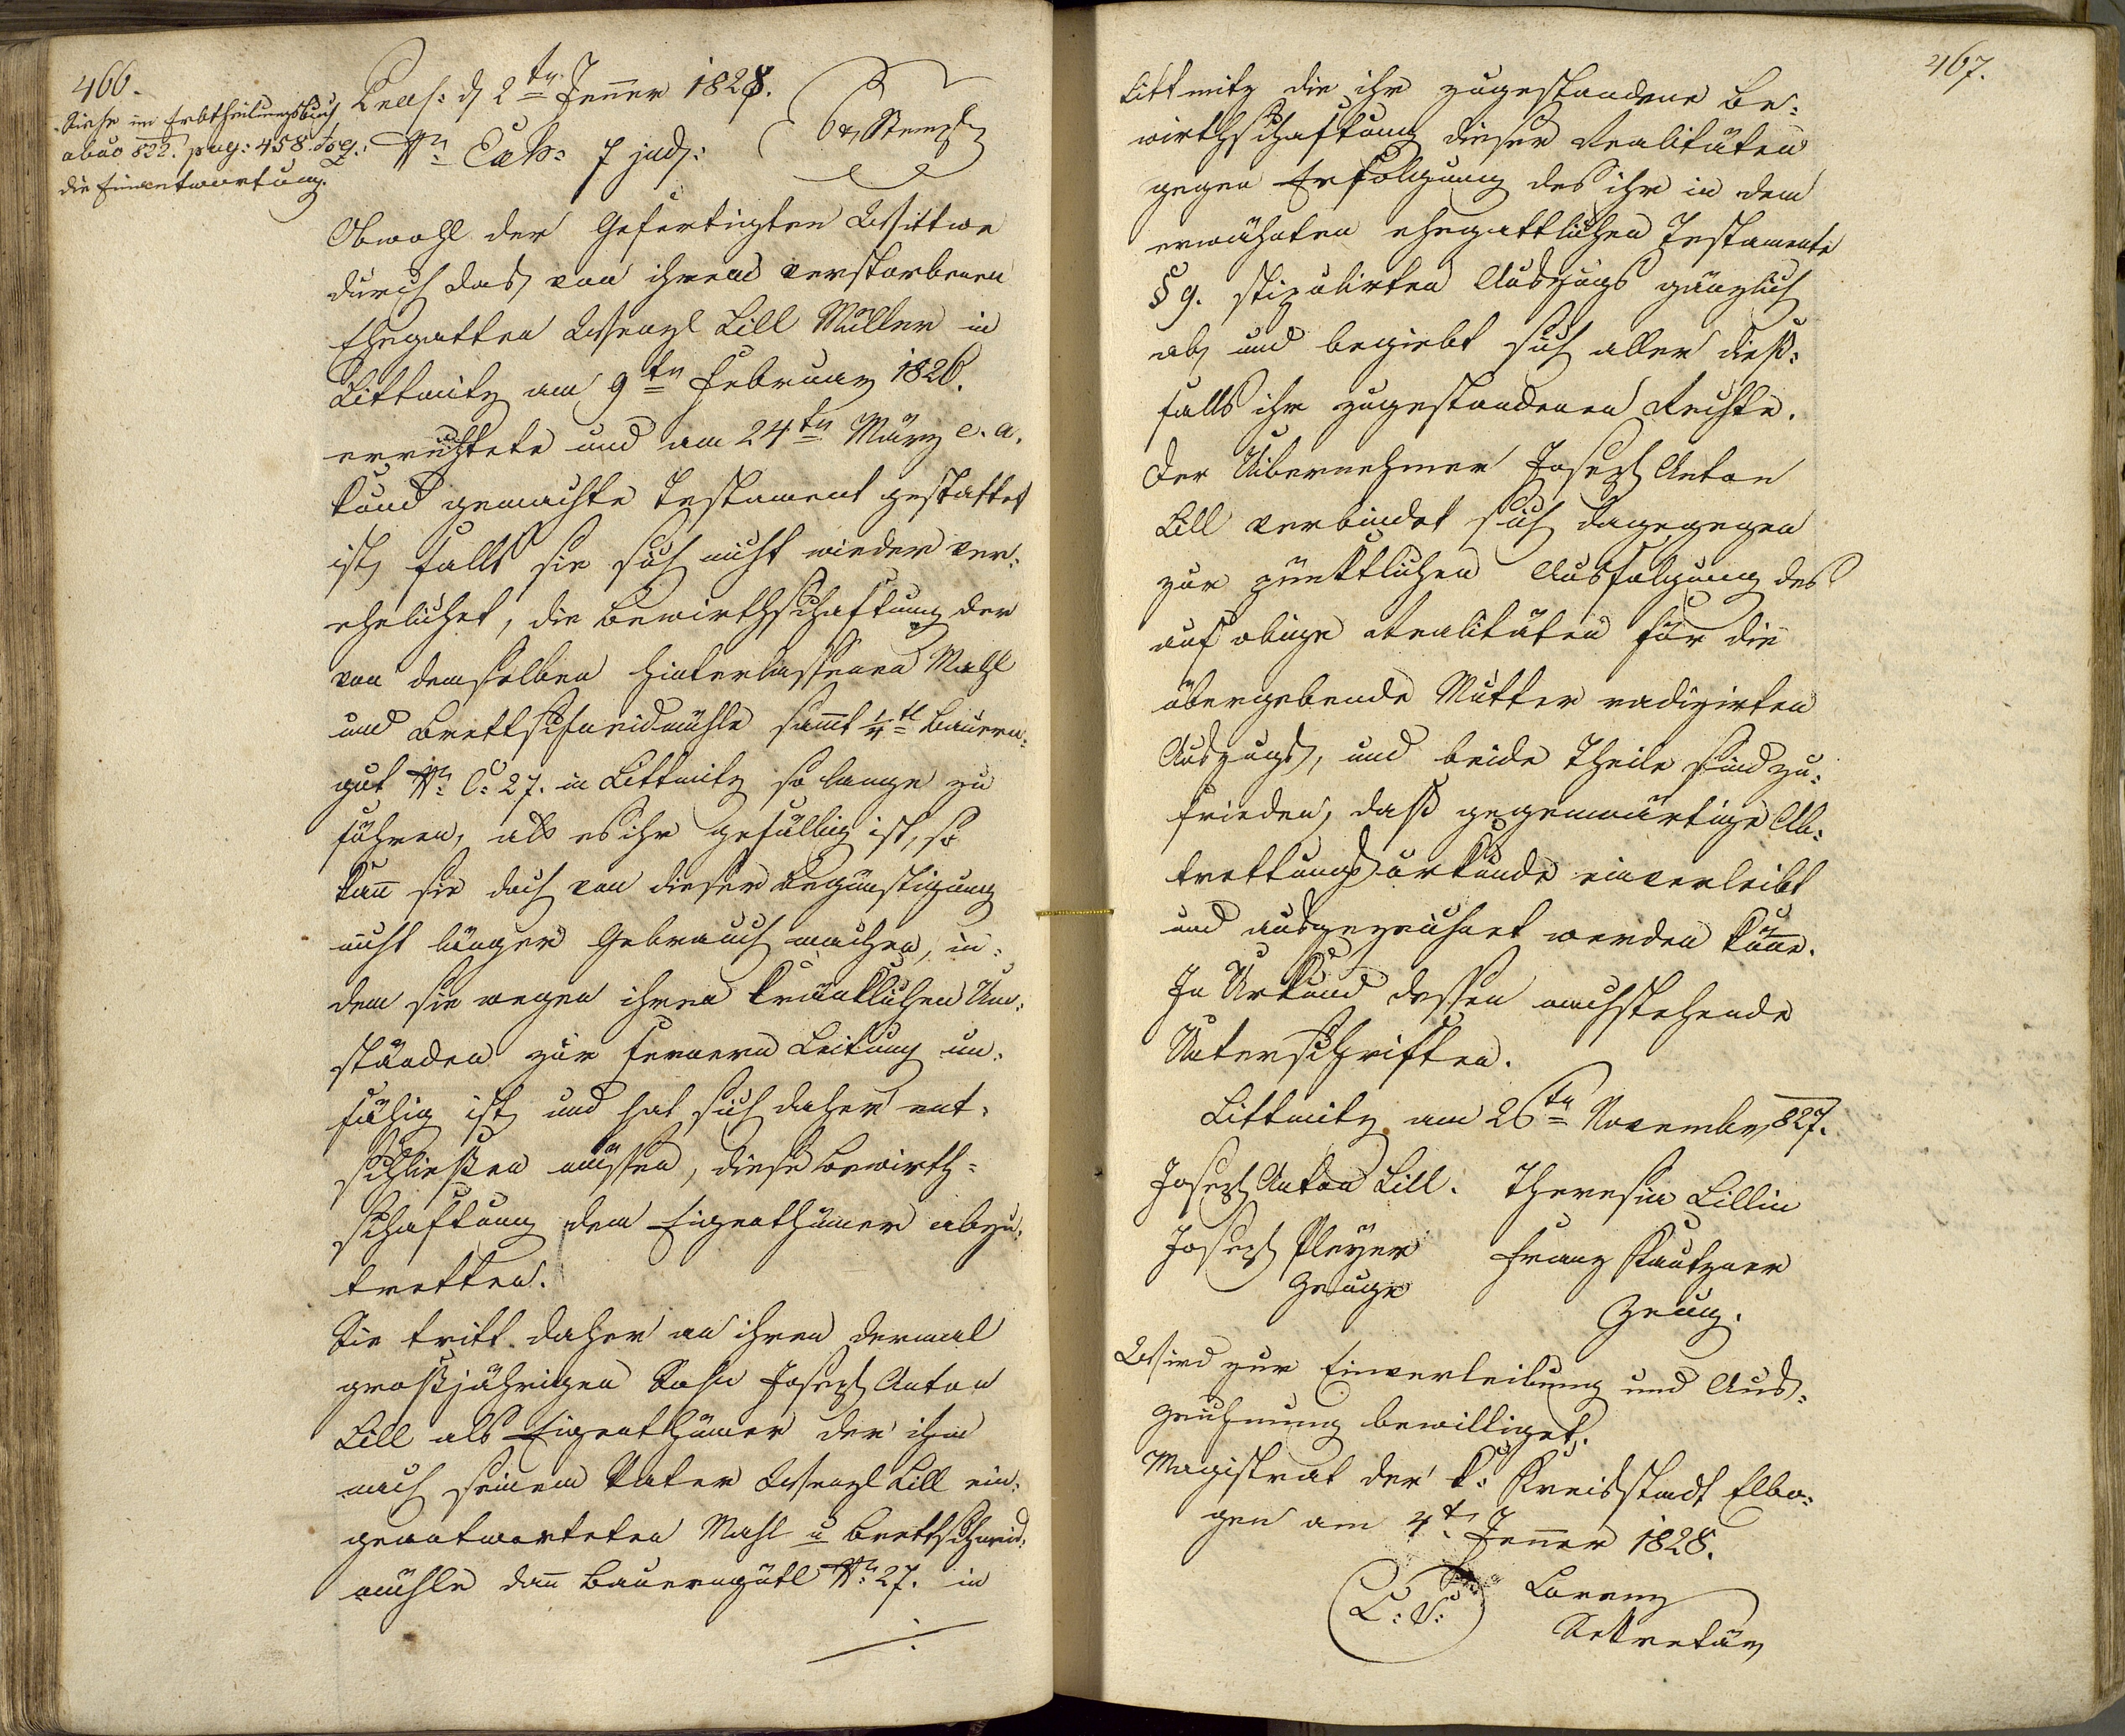 466.
Siehe im Erbtheilungsbuch
abus 822. pag: 458. seq:
die Einantwortung.
Praes: d 2ten Jenner 1828.
Nr Exh: 7 jud:
6 x Stempl
Obwohl der Gefertigten Wittwe
durch das von ihrem verstorbenen
Ehegatten Wenzl Lill Müller in
Littmitz am 9ten Februar 1826.
errichtete und am 24ten März e. a.
kund gemachte Testament gestattet
ist, falls sie sich nicht wieder ver:
ehelichet, die Bewirthschaftung der
von demselben hinterlassenen Mahl
und Brettschneidmühle sammt 1/4tl Bauern:
gut Nr C: 27. in Littmitz so lange zu
führen, als es ihr gefällig ist, so
kann sie doch von dieser Begünstigung
nicht länger Gebrauch machen, in:
dem sie wegen ihren kränklichen Um:
ständen zur fernern Leitung un:
fähig ist, und hat sich daher ent:
schließen müssen, diese Bewirth=
schaftung dem Eigenthümer abzu:
tretten.
Sie tritt daher an ihren dermal
großjährigen Sohn Joseph Anton
Lill als Eigenthümer der ihm
nach seinem Vater Wenzl Lill ein:
geantworteten Mahl u Brettschneid:
mühle dann Bauerngütl Nr 27. in
467.
Littmitz die ihr zugestandene Be:
wirthschaftung dieser Realitäten
gegen Erfolgung des ihr in dem
erwähnten ehegattlichen Testamente
§ 9. stipulirten Auszugs gänzlich
ab, und begiebt sich aller dieß:
falls ihr zugestandenen Rechte.
Der Uibernehmer Joseph Anton
Lill verbindet sich dagegegen
zur pünktlichen Ausfolgung des
auf obige Realitäten für die
übergebende Mutter radizirten
Auszugs, und beide Theile sind zu:
frieden, daß gegenwärtige Ab:
trettungsurkunde einverleibt
und ausgezeichnet werden könne.
In Urkund dessen nachstehende
Unterschriften.
Littmitz am 26ten November 827.
Joseph Anton Lill. Theresia Lillin
Joseph Pleyer Franz Kautzner
Zeuge Zeug.
Wird zur Einverleibung und Aus:
zeichnung bewilliget.
Magistrat der k: Kreisstadt Elbo:
gen am 4t Jenner 1828.
L: S: Lorenz
Sekretär